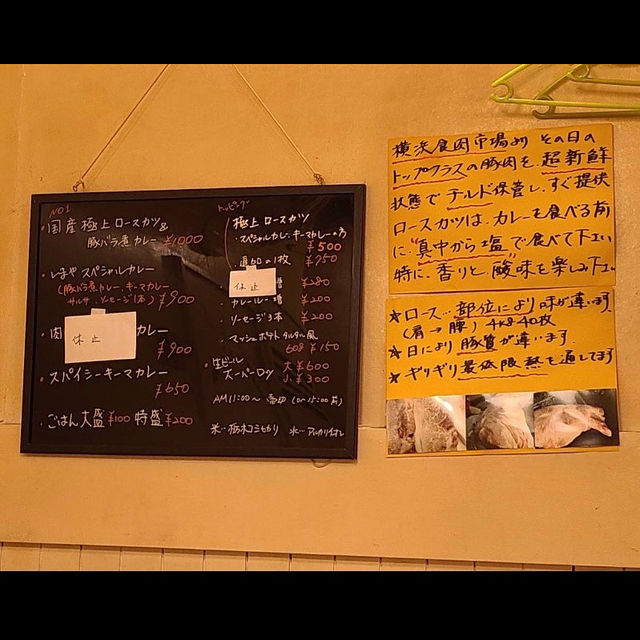 NO1
・国産 極上 ロースカツ&
豚バラ煮 カレー ¥1000
・しまや スペシャルカレー
(豚バラ煮カレー、キーマカレー
サルサ、ソーセージ1本) ¥900
・肉
休止
カレー
¥900
・スパイシーキーマカレー
¥650
・ごはん 大盛 ¥100 特盛 ¥200
トッピング
極上 ロースカツ
・スペシャルカレー、キーマカレーの方
¥500
の1枚 ¥750
休止
¥280
カレールー増 ¥200
・ソーセージ3本 ¥200
・マッシュポテト タルタル風
60g ¥150
・生ビール 大 ¥600
スーパードライ 小 ¥300
AM11:00〜
米… 栃木コシヒカリ 水… アルカリイオン
横浜食肉市場より その日の
トップクラスの豚肉を、超新鮮
状態で チルド保管し、すぐ提供
ロースカツは、カレーを食べる前
に"真中から塩"で食べて下さい
特に、香りと、酸味を楽しみ下さい
★ロース… 部位により味が違います
(肩→腰) 4kg 40枚
★日により 豚質が違います
★ギリギリ最低限熱を通してます